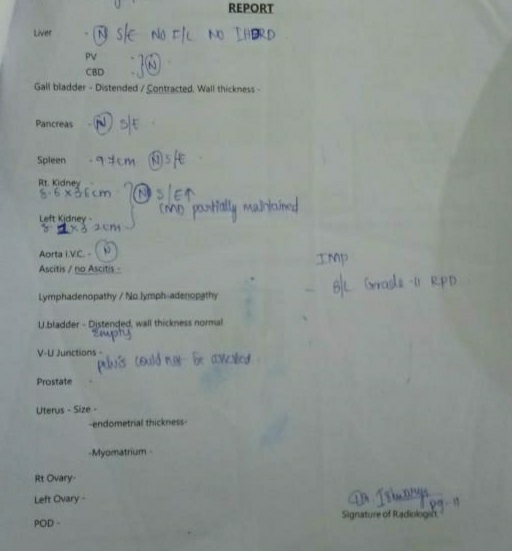 REPORT
Liver - (N) S/E NO F/L NO IHBRD
PV
CBD :} (N)
Gall bladder - Distended / Contracted, Wall thickness -
Pancreas - (N) S/E -
Spleen - 9.7cm (N) S/E -
Rt. Kidney -
8.6 x 3.6 cm } (N) S/E↑
CMD partially maintained
Left Kidney -
8.1 x 3.2cm
Aorta I.V.C. - (N)
Ascitis / no Ascitis -
IMP
- B/L Grade-II RPD
Lymphadenopathy / No lymph-adenopathy
U.bladder - Distended, wall thickness normal
Empty
V-U Junctions -
pelvis could not be assessed.
Prostate -
Uterus - Size -
-endometrial thickness-
-Myomatrium -
Rt Ovary-
Left Ovary -
POD -
Signature of Radiologist